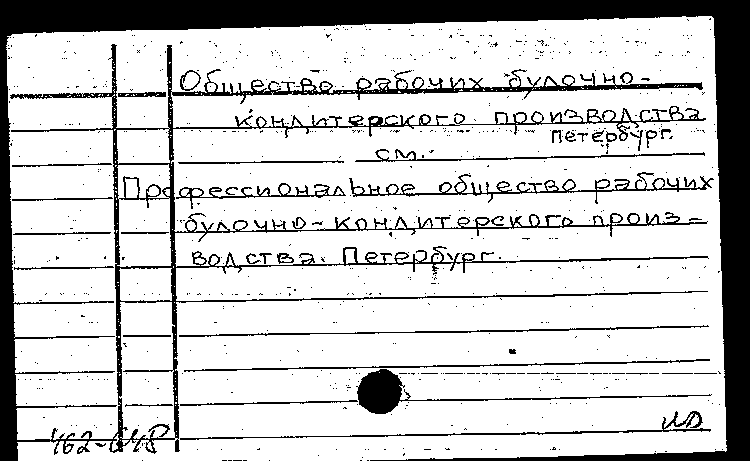 Общество рабочих булочно-
кондитерского производства
Петербург.
см.
Профессиональное общество рабочих
булочно-кондитерского произ-
водства. Петербург.
462-648